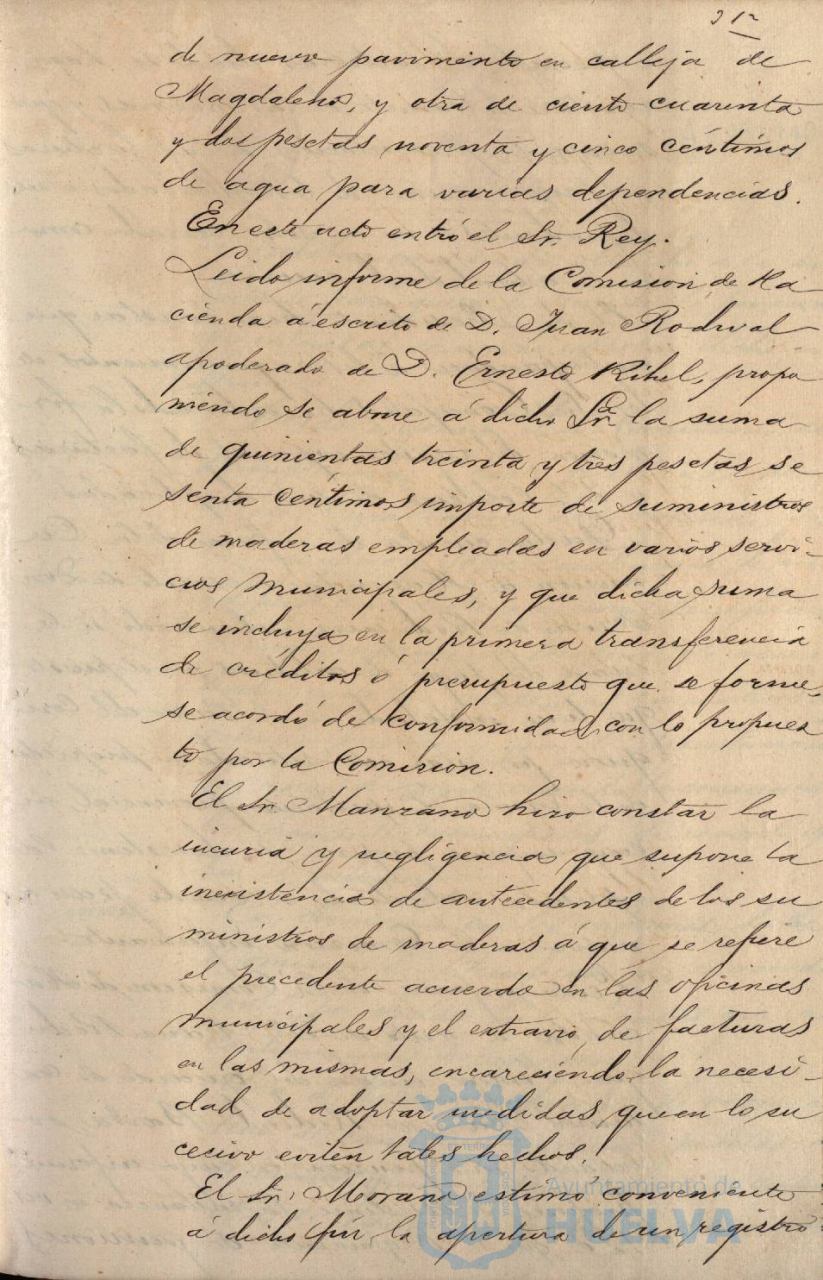 de nuevo pavimento en calleja de
Magdalena, y otra de ciento cuarenta
y dos pesetas noventa y cinco céntimos
de agua para varias dependencias.
En este acto entró el Sr. Rey.
Leido informe de la Comision de Ha
cienda á escrito de D. Juan
apoderado de D. Ernesto propo
niendo se abone á dicho Sr. la suma
de quinientas treinta y tres pesetas se
senta céntimos importe de suministros
de maderas empleadas en varios servi-
cios municipales, y que dicha suma
se incluya en la primera transferencia
de créditos ó presupuesto que se forme,
se acordó de conformidad con lo propues
to por la Comision.
El Sr. Manzano hizo constar la
incuria y negligencia que supone la
inexistencia de antecedentes de los su
ministros de maderas á que se refiere
el precedente acuerdo en las oficinas
municipales y el extravio de facturas
en las mismas, encareciendo la necesi-
dad de adoptar medidas que en lo su
cecivo eviten tales hechos.
El Sr. Morano estimó conveniente
á dicho fin la apertura de un registro
Ayuntamiento de
HUELVA